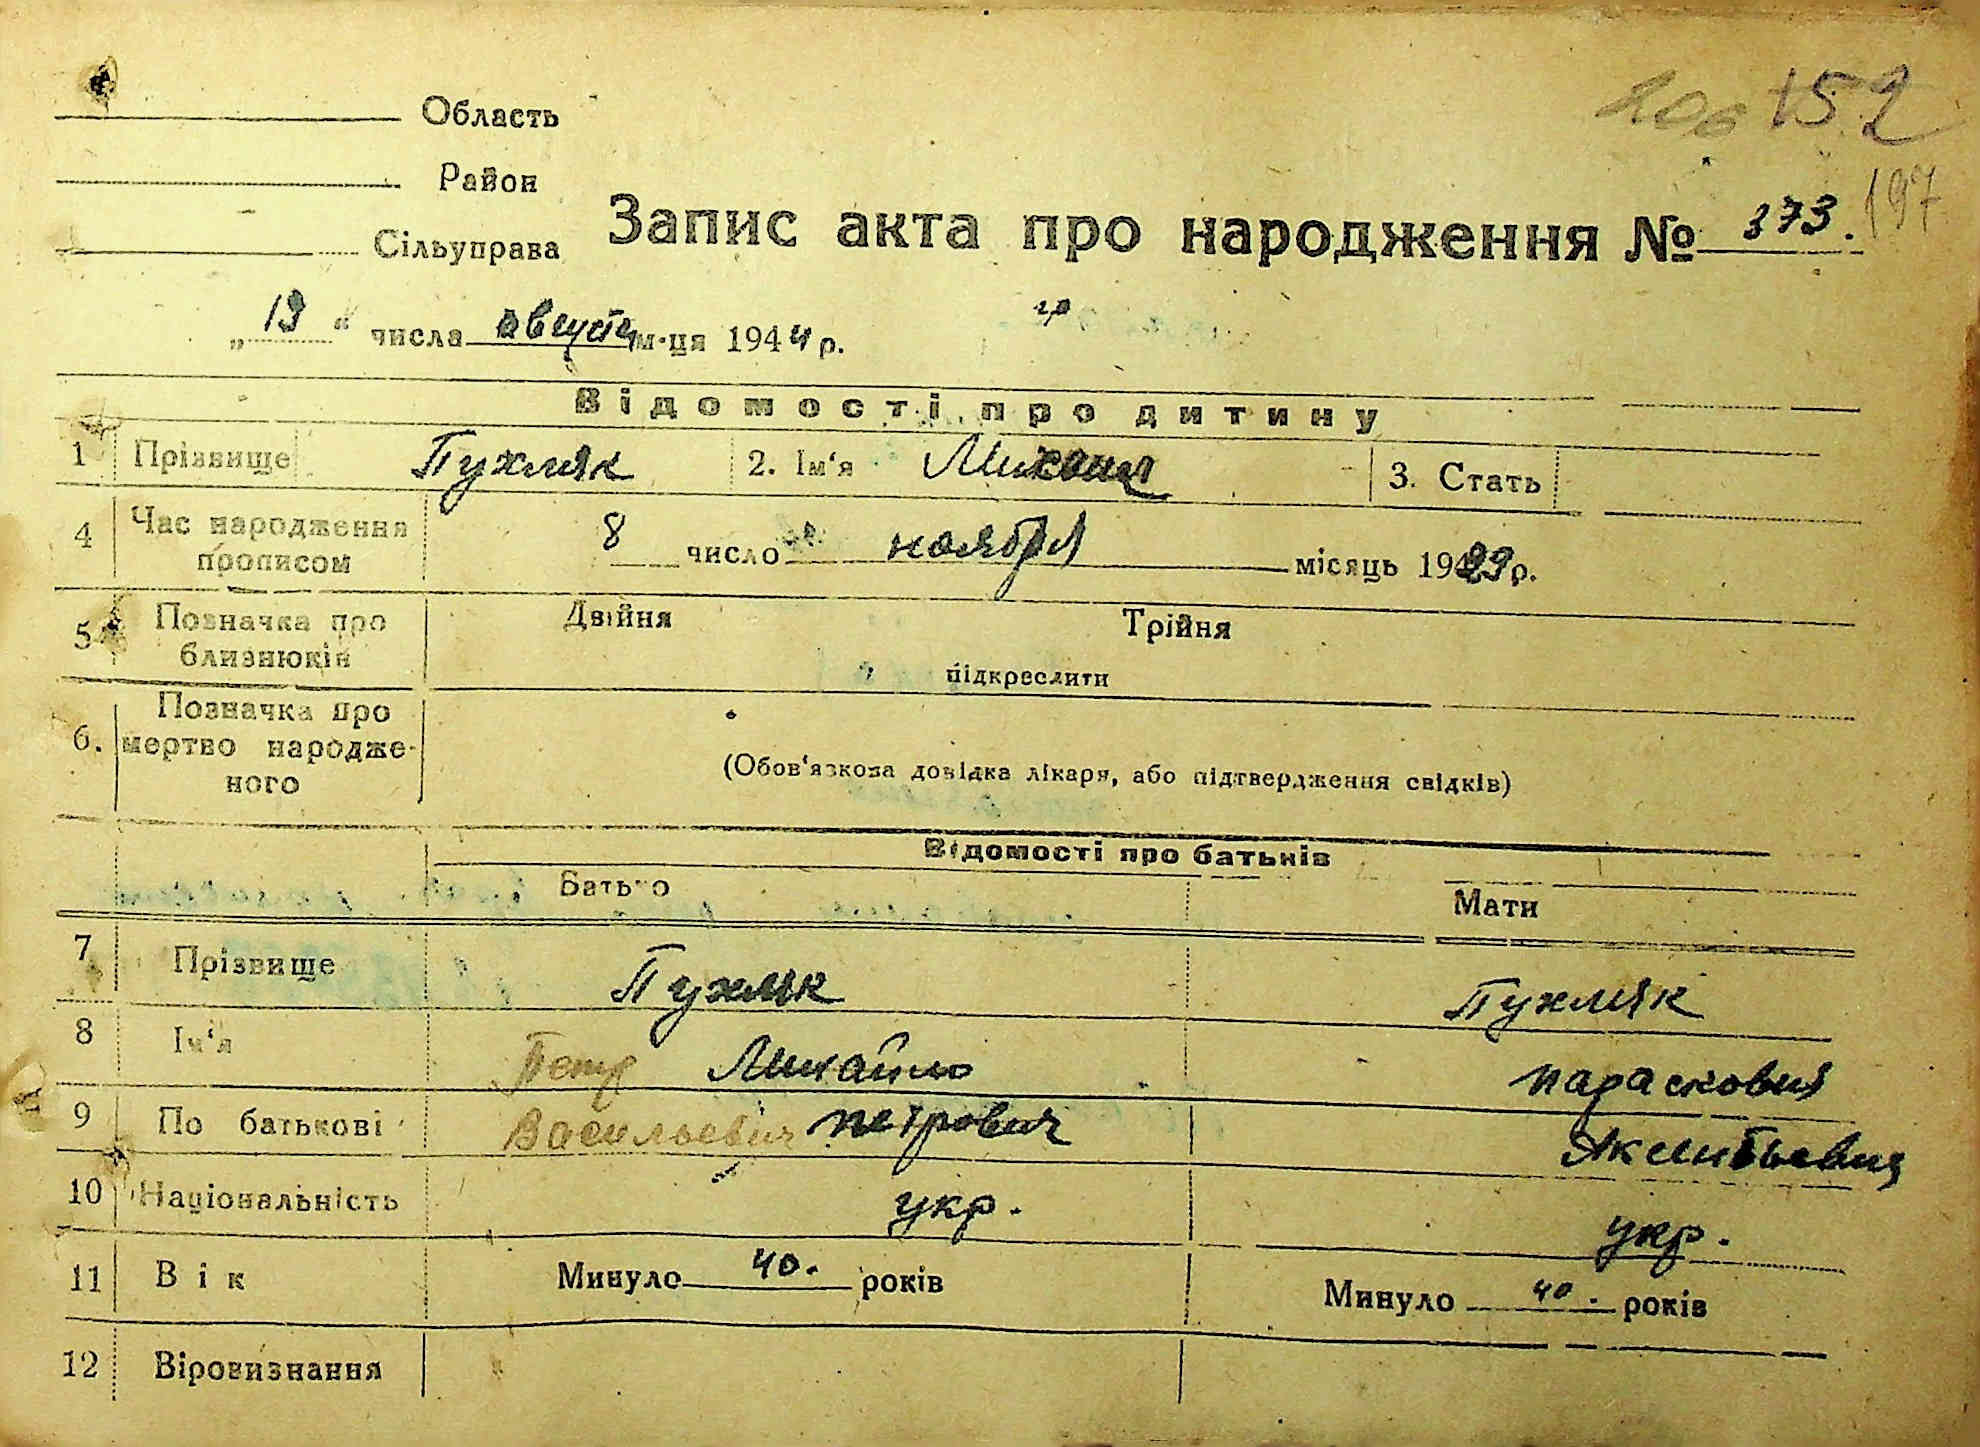 152
197
Область
Район
Сільуправа
Запис акта про народження № 373.
„ 19 “ числа августа м-ця 1944 р.
Відомості про дитину
1 Прізвище Пухляк 2. Ім‘я Михаил 3. Стать
4 Час народження прописом 8 число ноября місяць 1929 р.
5 Позначка про близнюків Двійня Трійня
підкреслити
6. Позначка про мертво народженого
(Обов‘язкова довідка лікаря, або підтвердження свідків)
Відомості про батьків
Батько Мати
7 Прізвище Пухляк Пухляк
8 Ім‘я Петр Михайло Парасковия
9 По батькові Васильевич Петрович
10 Національність укр. укр.
11 Вік Минуло 40. років Минуло 40. років
12 Віровизнання